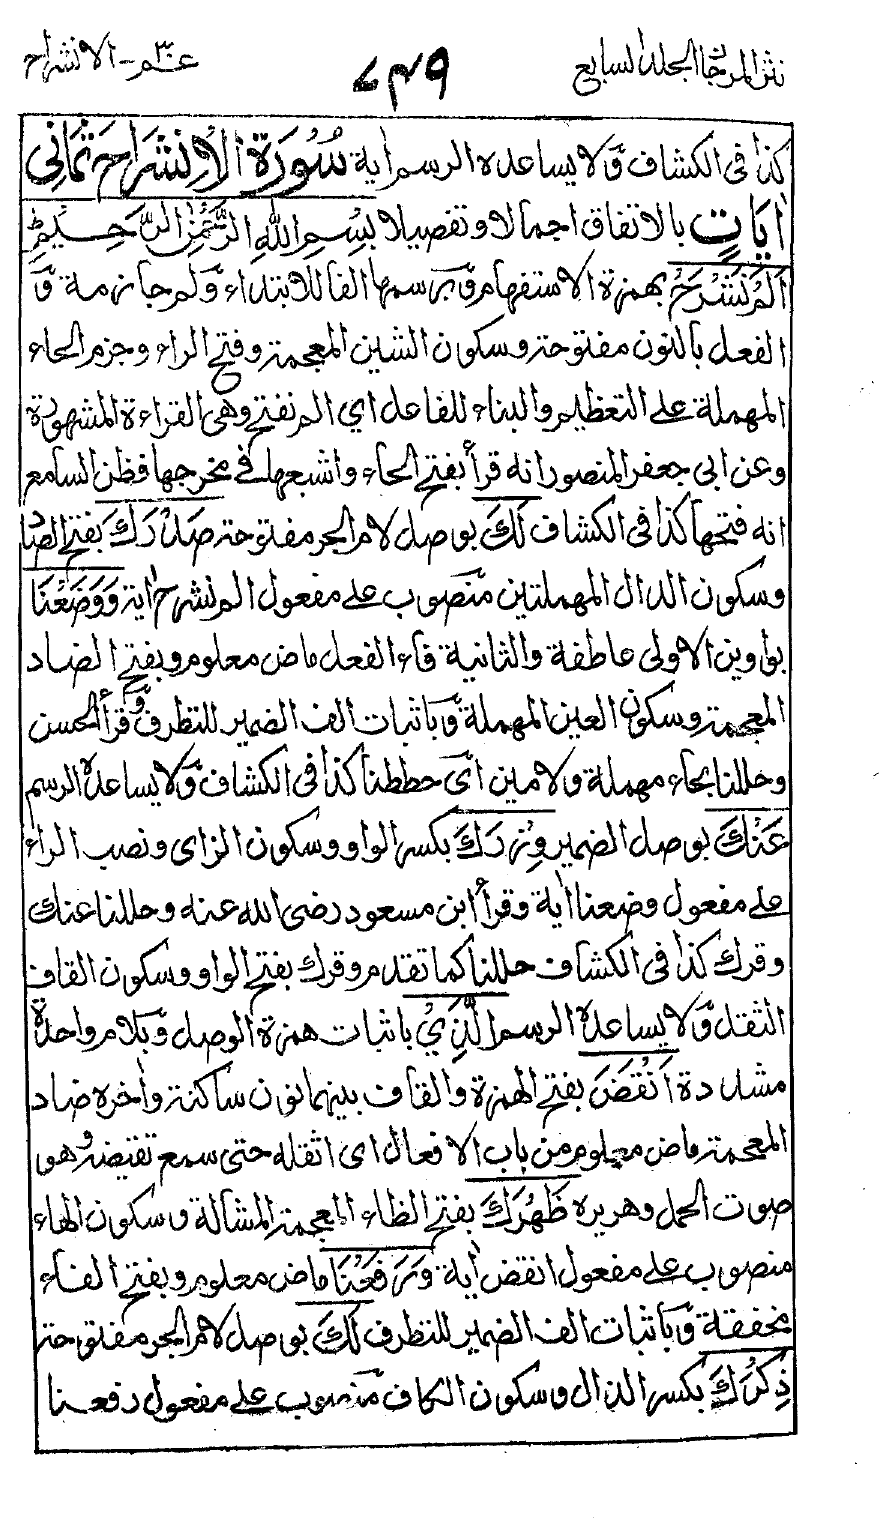 نثر المرجان الجلد السابع
٧٤٩
عم ٣٠ - الانشراح
كذا فى الكشاف وَلا يساعده الرسم اية سُورَة الْاِنْشِرَاح ثَمَانِي
اٰيَاتٍ بالاتفاق اجمالا وتفصيلا بِسْمِ اللهِ الرَّحْمٰنِ الرَّحِيْمِ
اَلَمْ نَشْرَحْ بهمزة الاستفهام وَبرسمها الفا للابتداء وَلم جازمة وَ
الفعل بالنون مفتوحة وسكون الشين المعجمة وفتح الراء وجزم الحاء
المهملة على التعظيم والبناء للفاعل اي الم نفتح وهى القراءة المشهورة
وعن ابى جعفر المنصور انه قرأ بفتح الحاء واشبعها فى مخرجها فظن السامع
انه فتحها كذا فى الكشاف لَكَ بوصل لام الجر مفتوحة صَدْرَكَ بفتح الصاد
وسكون الدال المهملتين منصوب على مفعول الم نشرح اٰية وَوَضَعْنَا
بواوين الاولى عاطفة والثانية فاء الفعل ماض معلوم وبفتح الضاد
المعجمة وسكون العين المهملة وَباثبات الف الضمير للتطرف وَقرأ الحسن
وحللنا بحاء مهملة ولامين اَى حططنا كذا فى الكشاف وَلا يساعده الرسم
عَنْكَ بوصل الضمير وِزْرَكَ بكسر الواو وسكون الزاى ونصب الراء
على مفعول وضعنا اٰية وقرأ ابن مسعود رضى الله عنه وحللنا عنك
وقرك كذا فى الكشاف حللنا كما تقدم وقرك بفتح الواو وسكون القاف
الثقل وَلا يساعده الرسم الَّذِيْ باثبات همزة الوصل وَبلام واحدة
مشددة اَنْقَضَ بفتح الهمزة والقاف بينهما نون ساكنة واٰخره ضاد
المعجمة ماض معلوم من باب الافعال اى اثقله حتى سمع نقيضه وهو
صوت الحمل وهريره ظَهْرَكَ بفتح الظاء المعجمة المشالة وسكون الهاء
منصوب على مفعول انقض اٰية وَرَفَعْنَا ماض معلوم وبفتح الفاء
مخففة وَباثبات الف الضمير للتطرف لَكَ بوصل لام الجر مفتوحة
ذِكْرَكَ بكسر الذال وسكون الكاف منصوب على مفعول رفعنا